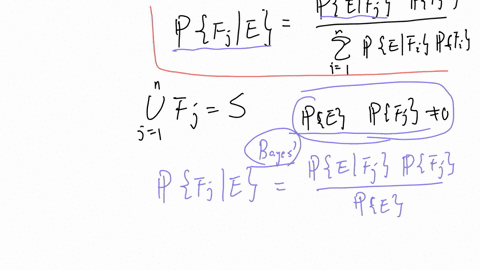 P{Fj|E} = P{E|Fj} P{Fj} / n Σ i=1 P{E|Fi} P{Fi}
n ∪ j=1 Fj = S P{E} P{Fj} ≠ 0
Bayes'
P{Fj|E} = P{E|Fj} P{Fj} / P{E}